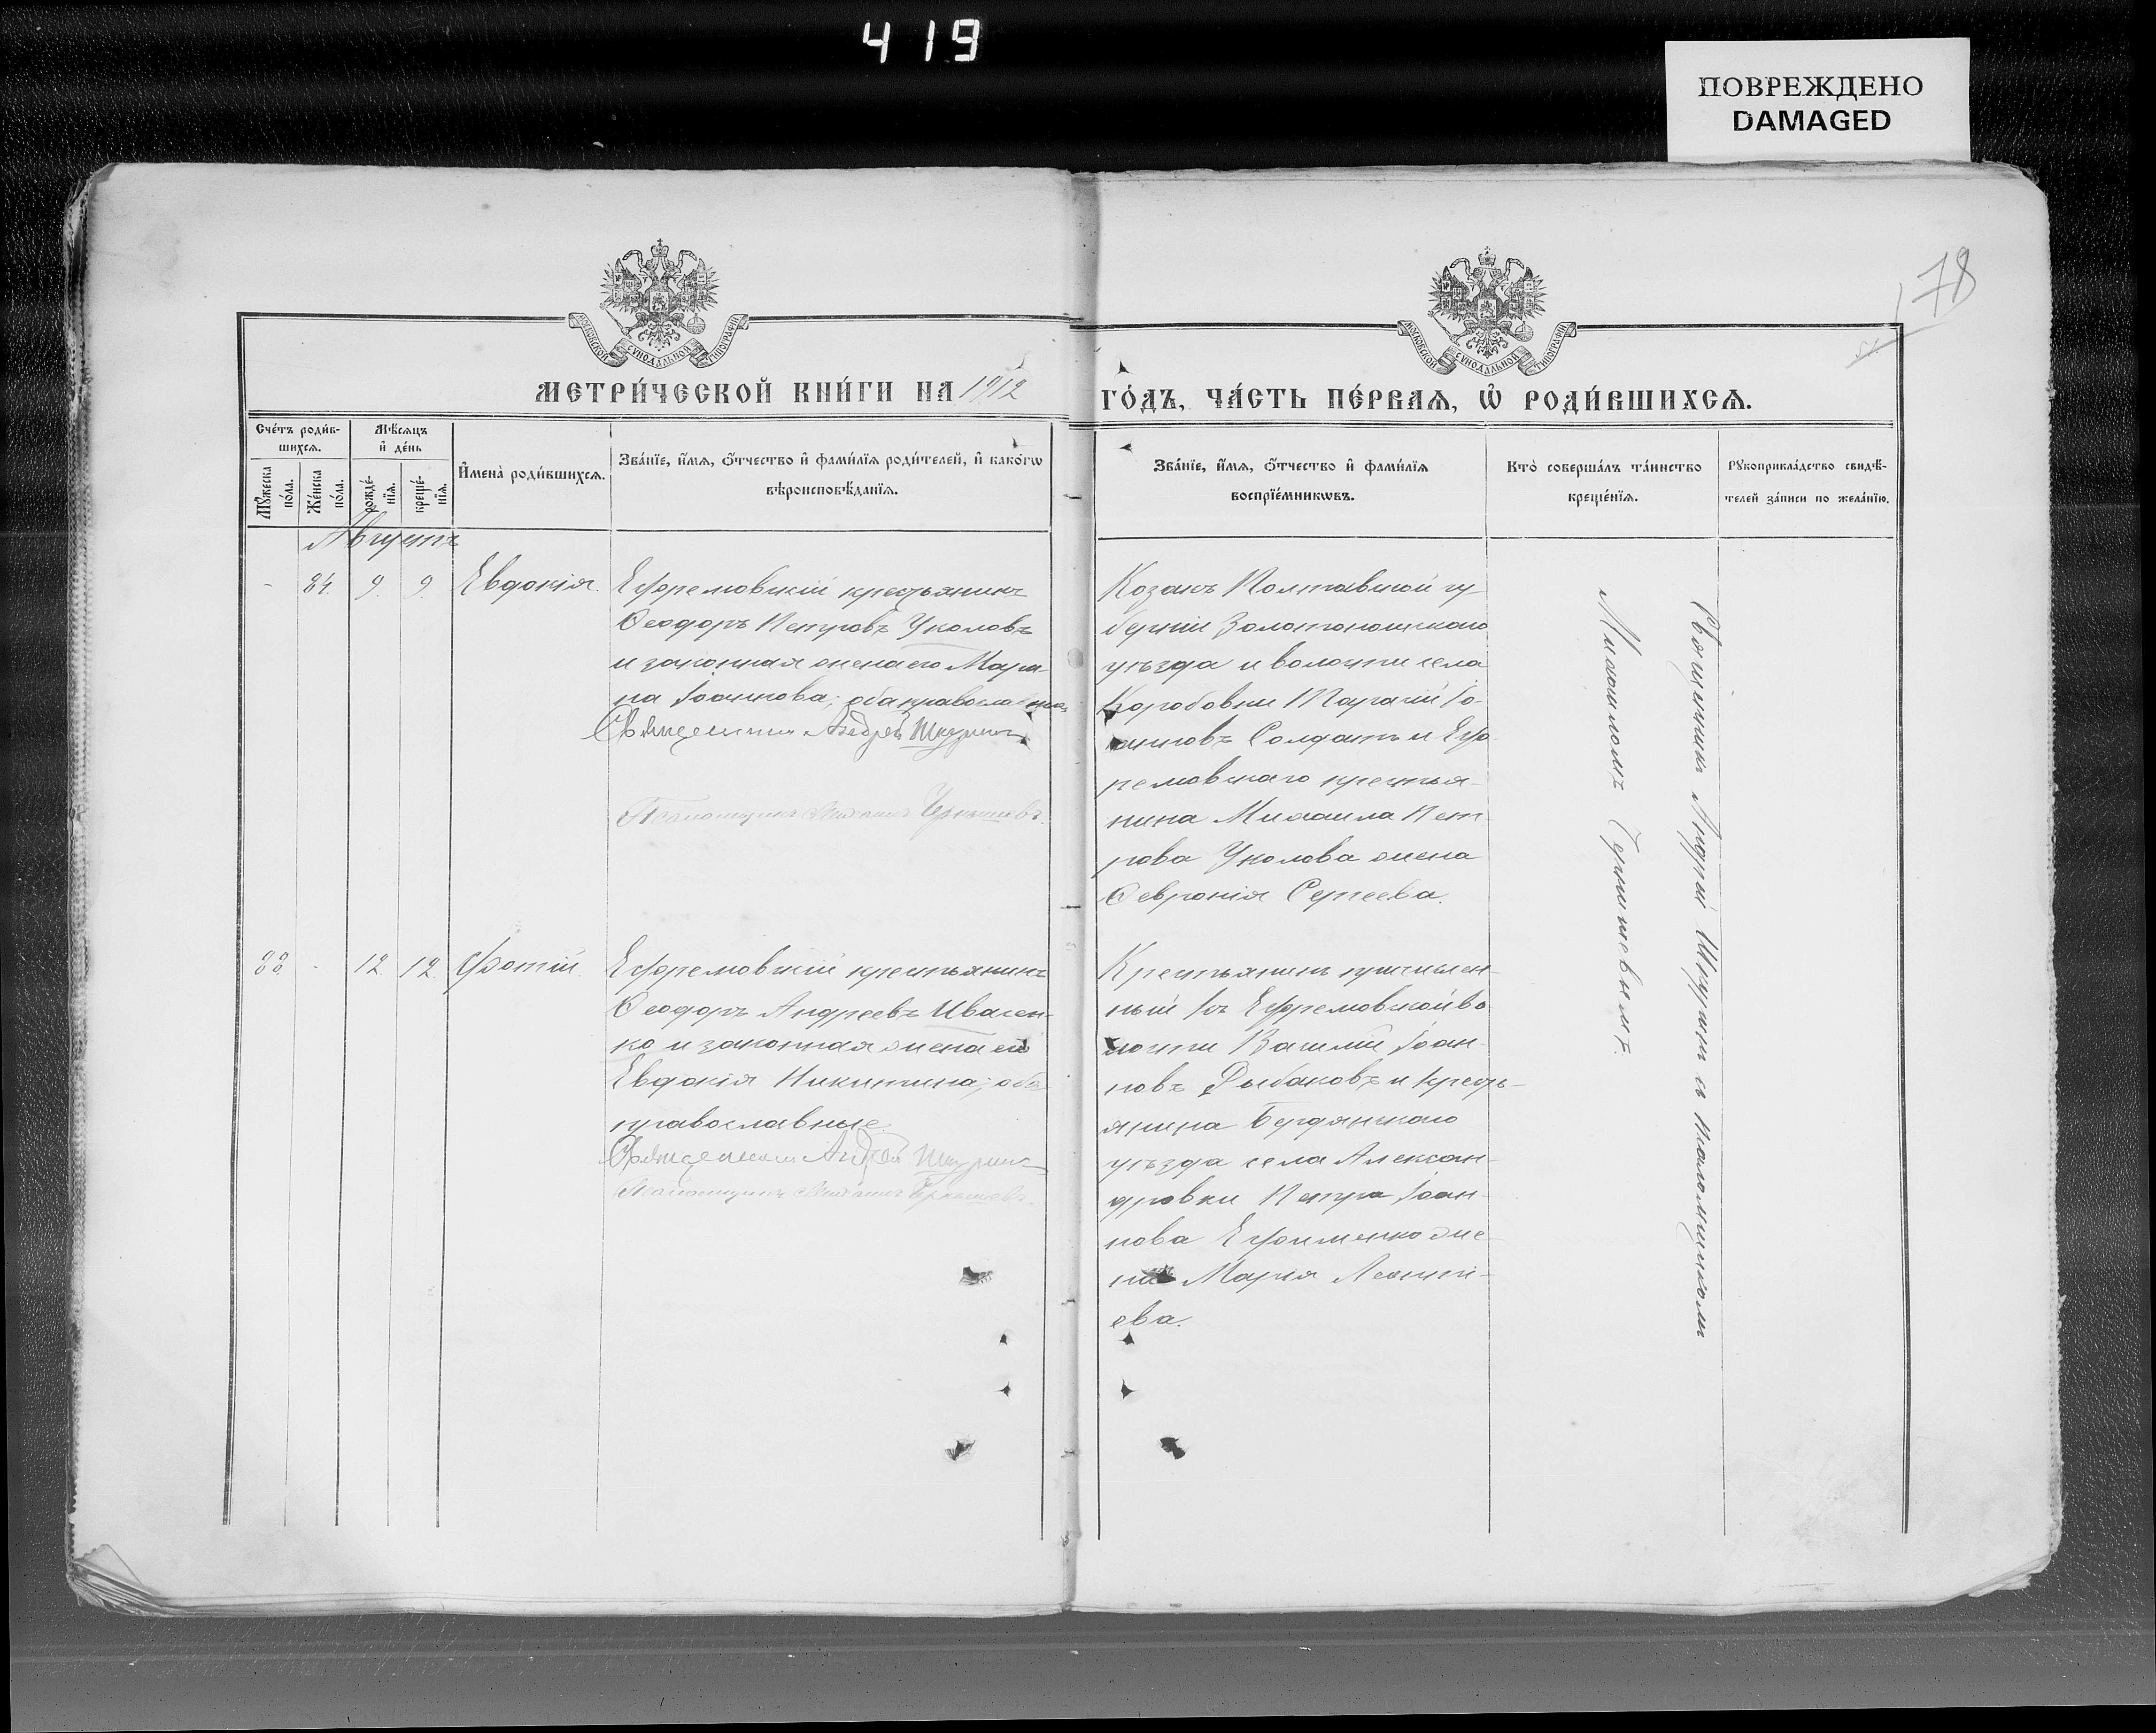 419
ПОВРЕЖДЕНО
DAMAGED
178
МОСКОВСКОЙ СѴНОДАЛЬНОЙ ТИПОГРАФІИ
МОСКОВСКОЙ СѴНОДАЛЬНОЙ ТИПОГРАФІИ
МЕТРИ́ЧЕСКОЙ КНИ́ГИ НА 1912
ГО́ДЪ, ЧА́СТЬ ПЕ́РВАѦ, Ѡ҆ РОДИ́ВШИХСѦ.
Сче́тъ роди́в-
шихсѧ.
Мѣ́сѧцъ
и҆ де́нь
Мꙋ́жеска
по́ла.
Же́нска
по́ла.
рожде́-
нїѧ.
креще́-
нїѧ.
И҆мена̀ роди́вшихсѧ.
Зва́нїе, и҆́мѧ, ѻ҆́тчество и҆ фами́лїѧ роди́телей, и҆ како́гѡ
вѣроисповѣ́данїѧ.
Зва́нїе, и҆́мѧ, ѻ҆́тчество и҆ фами́лїѧ
воспрїе́мникѡвъ.
Кто̀ соверша́лъ та́инство
креще́нїѧ.
Рꙋкоприкла́дство свидѣ́-
телей за́писи по жела́нїю.
Августъ
- 84. 9. 9. Евдокія.
Ефремовскій крестьянинъ
Ѳеодоръ Петровъ Уколовъ
и законная жена его Мари-
на Іоаннова; оба православные
Священникъ Андрей Шкуринъ
Псаломщикъ Михаилъ Чернышевъ.
Козакъ Полтавской гу
берніи Золотоношскаго
уѣзда и волости села
Коробовки Тарасій Іо-
анновъ Солдатъ и Еф-
ремовскаго крестья-
нина Михаила Пет
рова Уколова жена
Ѳевронія Сергеева.
Священникъ Андрей Шкуринъ съ псаломщикомъ
Михаиломъ Чернышевымъ.
88. - 12 12. Фотій.
Ефремовскій крестьянинъ
Ѳеодоръ Андреевъ Ивасен-
ко и законная жена его
Евдокія Никитина; оба
православные.
Священникъ Андрей Шкуринъ
Псаломщикъ Михаилъ Чернышевъ.
Крестьянинъ причислен-
ный къ Ефремовской во
лости Василій Іоан-
новъ Рыбаковъ и кресть-
янина Бердянскаго
уѣзда села Алексан-
дровки Петра Іоан-
нова Ефименко же-
на Марія Леонтi-
ева.